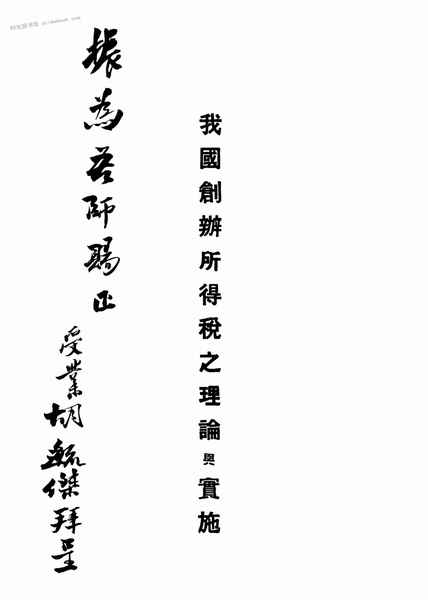 我國創辦所得稅之理論與實施
振為吾師賜正
受業胡毓傑拜呈